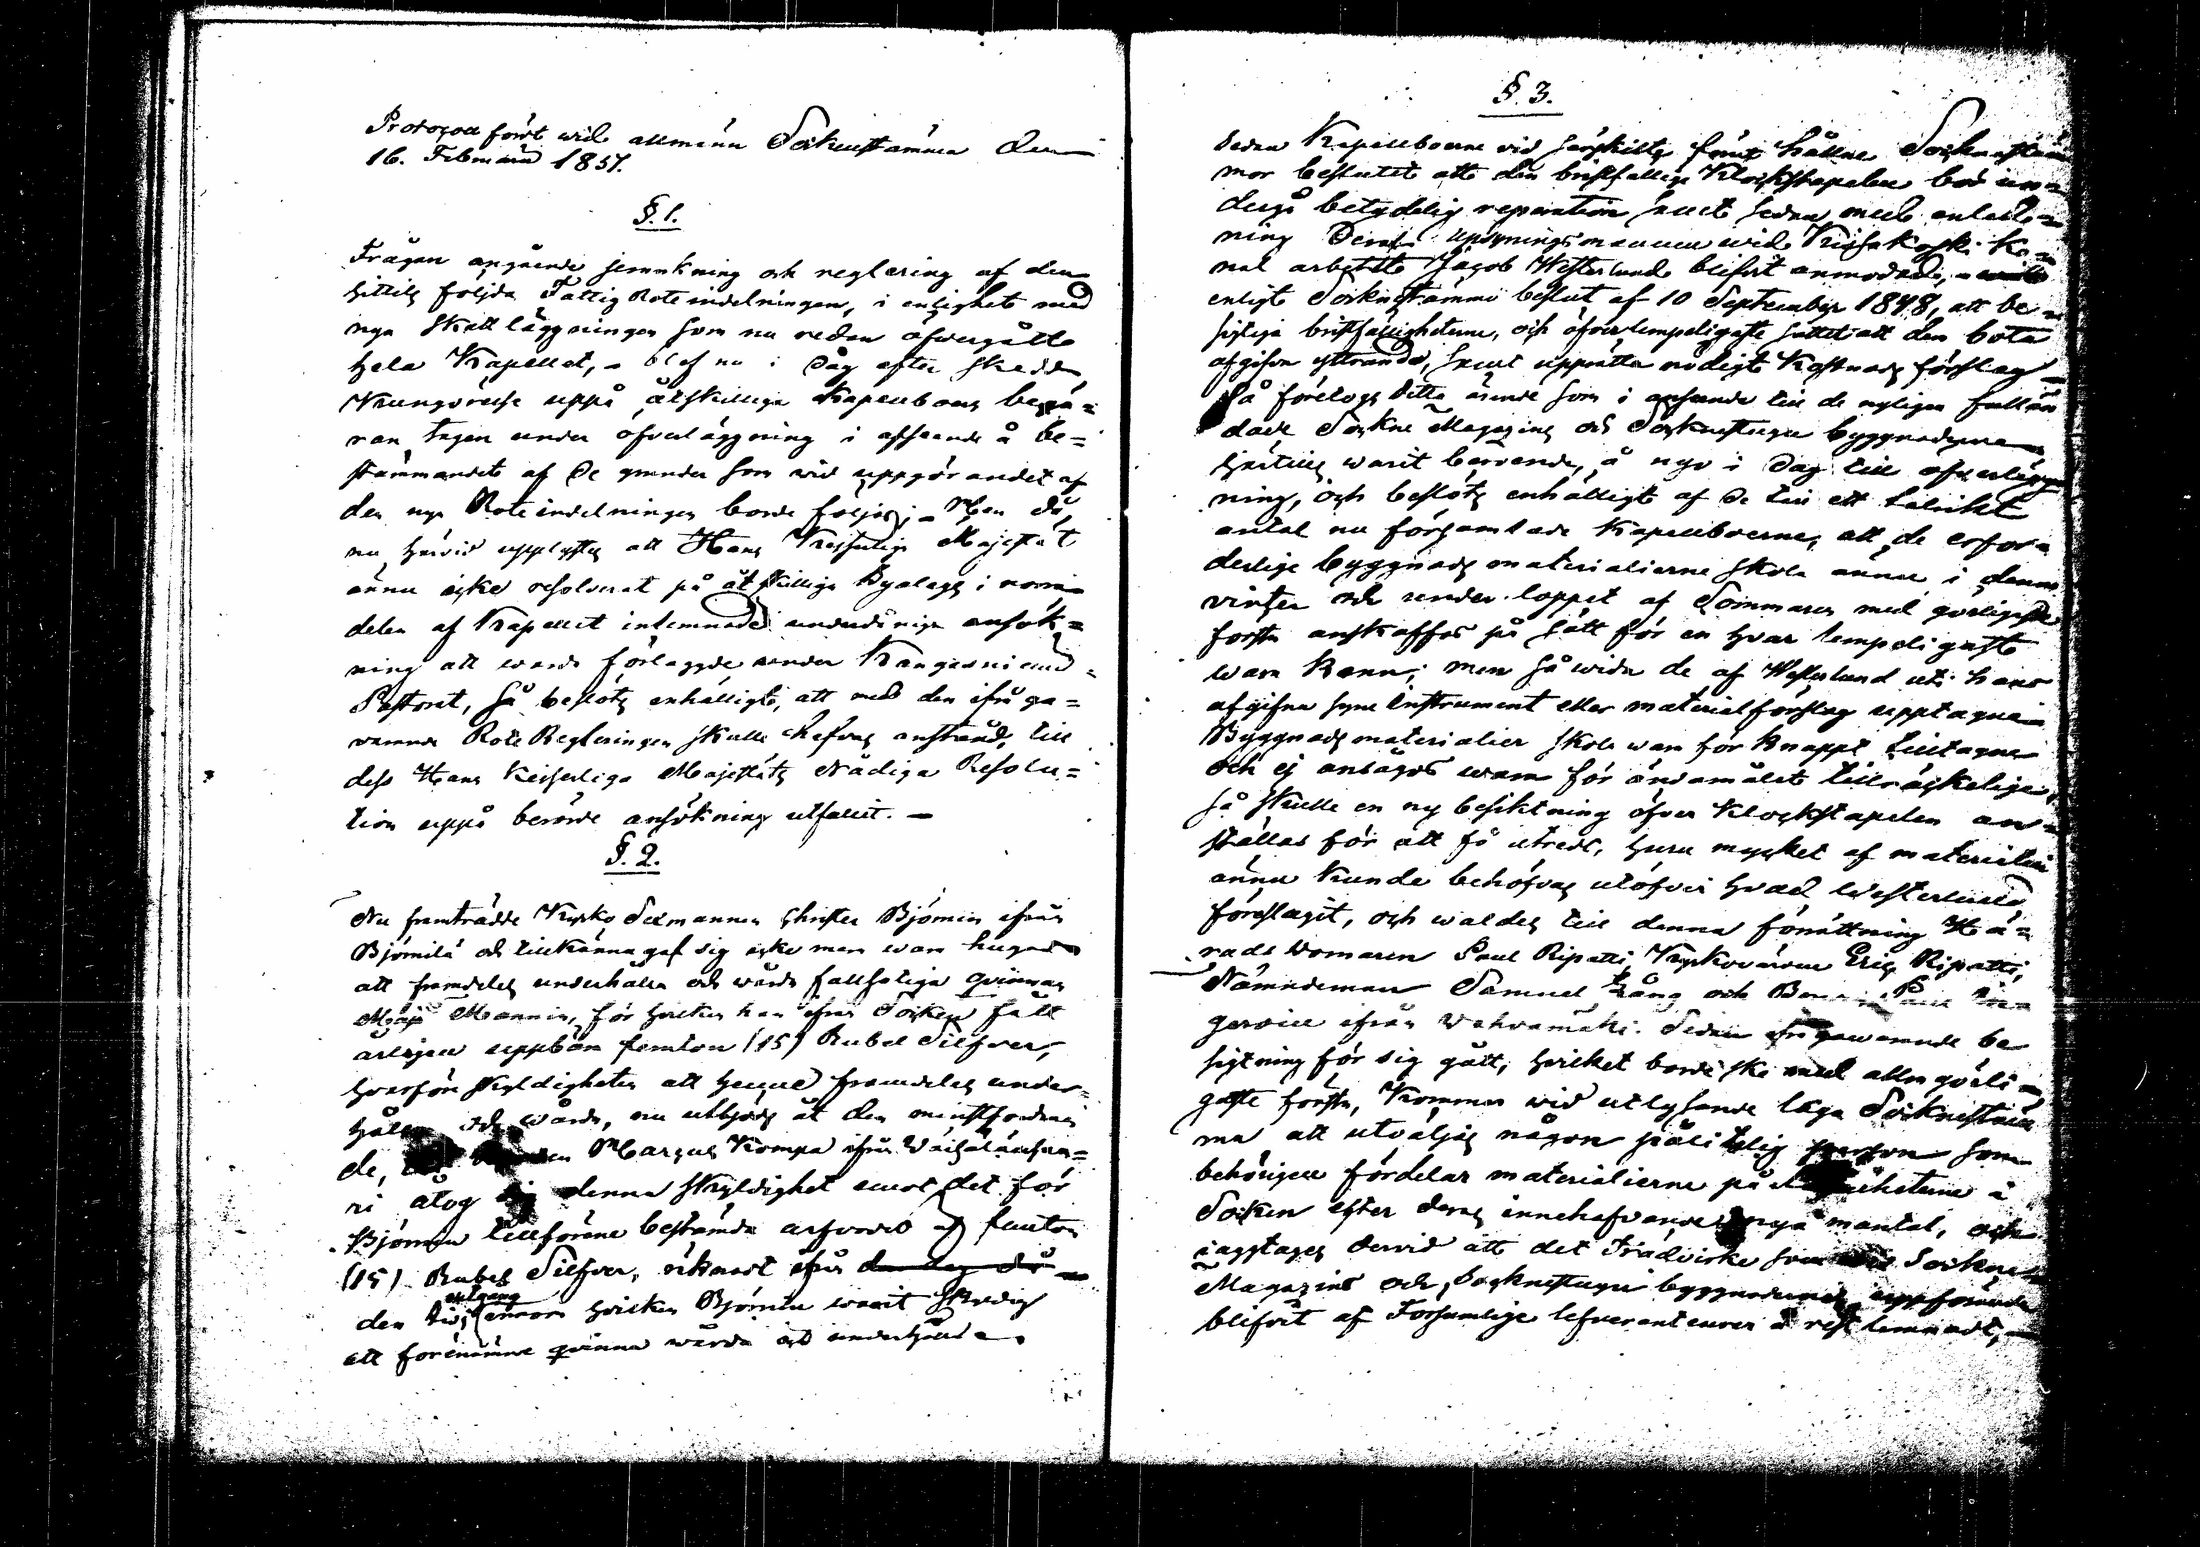 Protocoll fördt wid allmänn Sockenstämma den
16. Februarii 1851.
§. 1.
Frågan angående jemnkning och reglering af den
hittils följda Fattig Rote indelningen, i enlighet med
nya Skattläggningen som nu redan öfvergått
hela Kapellet, - blef nu i dag efter skedd
Kungörelse uppå åtskilliga Kapellboers begä=
ran tagen under öfverläggning i afseende å be=
stämmandet af de grunder som vid uppgörandet af
den nya Rote indelningen borde följas; - Men då
nu härvid upplystes att Hans Kejserliga Majestät
ännu icke resolverat på åtskilliga Byalags i norra
delen af Kapellet inlemnade underdåniga ansök=
ning att warda förlaggde under Kangasniemi
Pastorat, så beslöts enhälligt, att med den ifråga=
varande Rote Regleringen skulle hafvas anstånd, till
dess Hans Keiserliga Majestäts Nådiga Resolu=
tion uppå berörde ansökning utfallit. -
§. 2.
Nu framträdde Kyrko Sexmannen Christer Björnin ifrån
Björnilä och tillkännagaf sig icke mera wara hugad
att framdeles underhålla och wårda fallsotiga qvinnan
Maja Mannin, för hvilken han ifrån Socken fått
årligen uppbära femton (15) Rubel Silfver,
hvarföre skyldigheten att henne framdeles under=
hålla och wårda, nu utbjöds åt den minstfordran
de, Marcus Kompa ifrån
ri åtog sig denna skyldighet emot det för
Björnin tillförene bestämda arfvode af femton
(15) Rubel Silfver, räknadt ifrån den dag då
den tids utgång innom hvilken Björnin warit skyldig
att förenämnde qvinna wårda och underhålla.
§. 3.
Sedan Kapellboerne vid särskilte förut hållne Sockenstäm
mor beslutit att den bristfällige Klockstapelen bör un=
dergå betydelig reparation samt sedan med anled=
ning deraf upsyningsmannen wid Ka=
nal arbetet Jacob Westerlund blifvit anmodad,
enligt Sockenstämmo beslut af 10 September 1848, att be=
sigtiga bristfälligheterne, och öfver lempeligaste sättet att dem bota
afgifva yttrande, samt upprätta nödigt Kostnads förslag
Så företogs detta ärende som i anseende till de nyligen fullän
dade Sockne Magazins och Sockenstugu byggnaderna
härtills warit beroende, å nyo i dag till öfverlägg
ning, och beslöts enhälligt af de till ett talrikt
antal nu församlade Kapellboerne, att de erfor=
derlige byggnads materialierne skola ännu i denna
vinter och under loppet af Sommaren med görligaste
första anskaffas på sätt för en hvar lempeligast
wara kann; men så wida de af Westerlund uti hans
afgifna syne Instrument eller materialförslag upptagna
Byggnads materialier skola wara för knappt tilltagne
och ej ansågos wara för ändamålet tillräckelige,
så skulle en ny besiktning öfver Klockstapelen an=
ställas för att få utredt, huru mycket af materialier
ännu kunde behöfvas utöfver hvad Westerlund
föreslagit, och waldes till denna förrättning Hä=
radsdomaren Paul Ripatti, Kyrkovärden Eric Ripatti,
Nämndeman Samuel Häng och
ifrån Wehvamäki. Sedan ifrågavarande be
sigtning för sig gått, hvilket borde ske med allra görli
gaste första, kommer wid utlysande laga Sockenstäm
ma att utväljas någon pålitelig person som
behörigen fördelar materialierne på lägenheterne i
Socken efter deras innehafvande nya mantal, och
iagttages dervid att det Trädvirke som Sockne
Magazins och Sockenstugu byggnadernes uppförande
blifvit af Försumlige lefveranteurer å rest lemnadt,